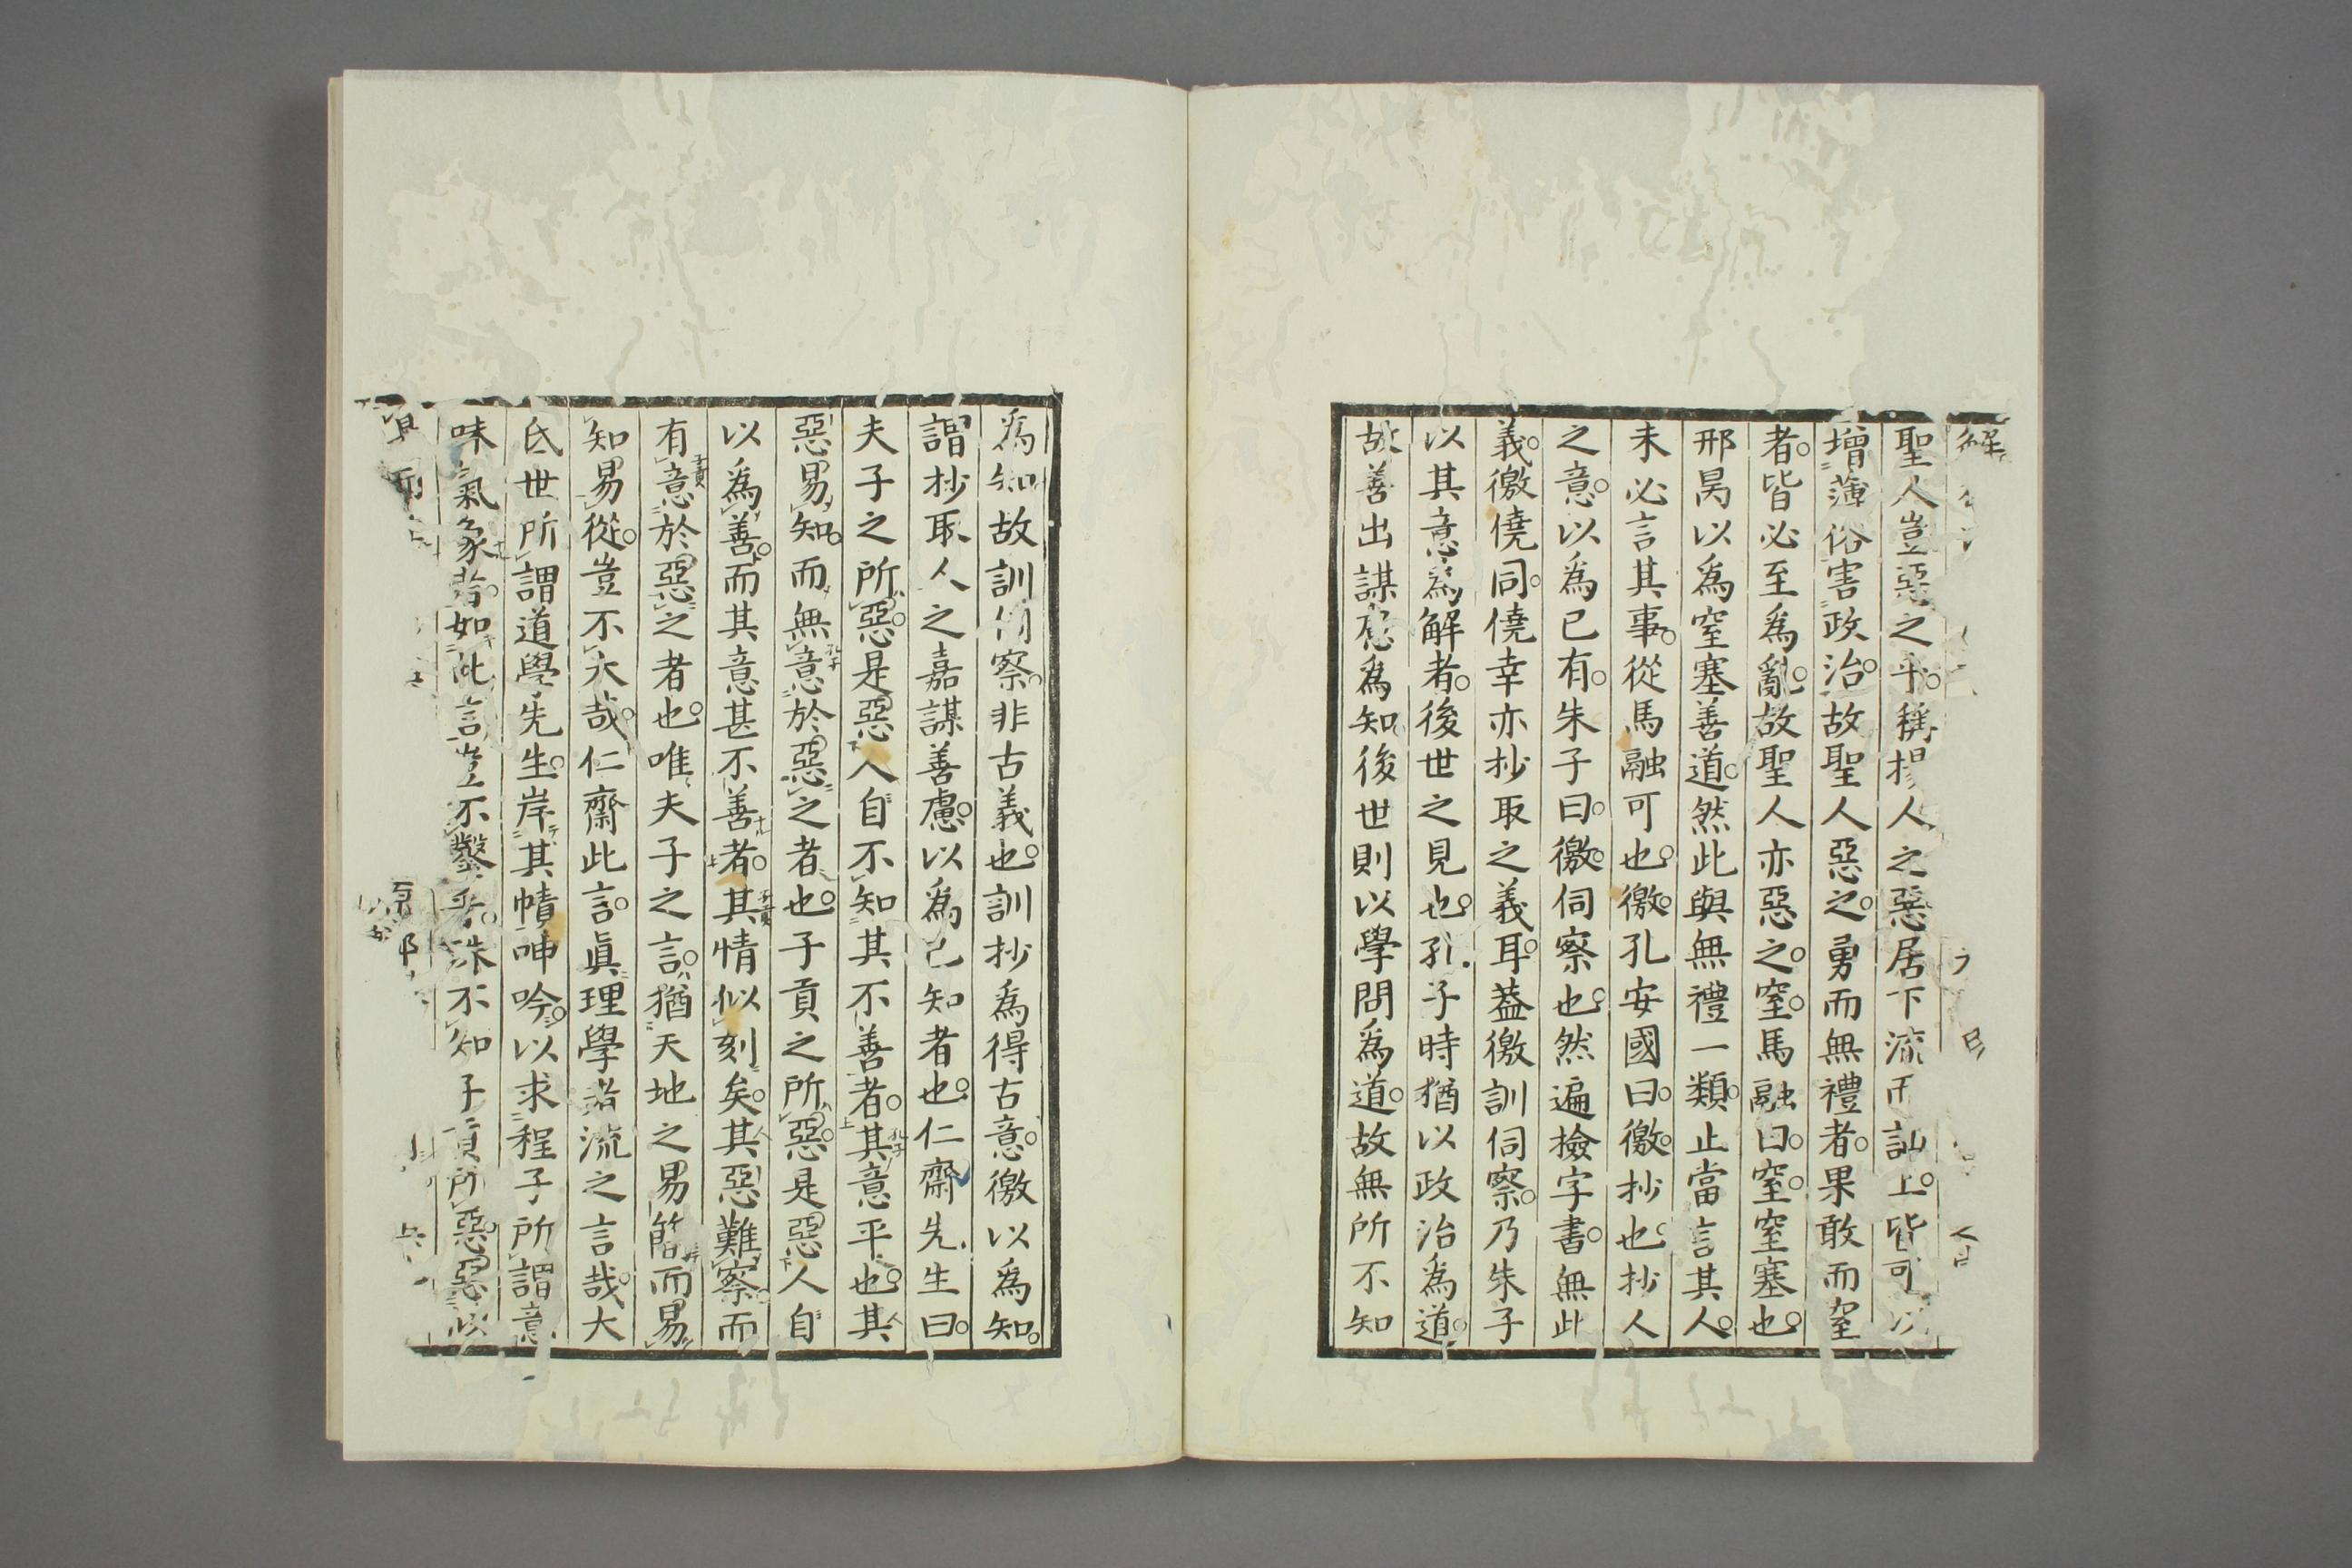 聖人豈惡之乎。稱揚人之惡居下流而訕上。皆可以
增薄俗害政治。故聖人惡之。勇而無禮者。果敢而窒
者。皆必至爲亂。故聖人亦惡之。窒。馬融曰。窒。窒塞也。
邢昺以爲窒塞善道。然此與無禮一類。止當言其人。
未必言其事。從馬融可也。徼。孔安國曰。徼。抄也。抄人
之意。以爲已有。朱子曰。徼。伺察也。然遍檢字書。無此
義。徼僥同。僥幸亦抄取之義耳。葢徼訓伺察。乃朱子
以其意爲解者。後世之見也。孔子時猶以政治爲道。
故善出謀慮爲知。後世則以學問爲道。故無所不知
爲知故訓伺察。非古義也。訓抄爲得古意。徼以爲知。
謂抄取人之嘉謀善慮。以爲己知者也。仁齋先生曰。
夫子之所惡。是惡人自不知其不善者。其意平也。其
惡易知。而無意於惡之者也。子貢之所惡。是惡人自
以爲善。而其意甚不善者。其情似刻矣。其惡難察。而
有意於惡之者也。唯夫子之言。猶天地之易簡而易
知易從。豈不大哉。仁齋此言。眞理學者流之言哉。大
氐世所謂道學先生。岸其幘呻吟。以求程子所謂意
味氣象者。如此言豈不鑿乎。殊不知子貢所惡。惡以